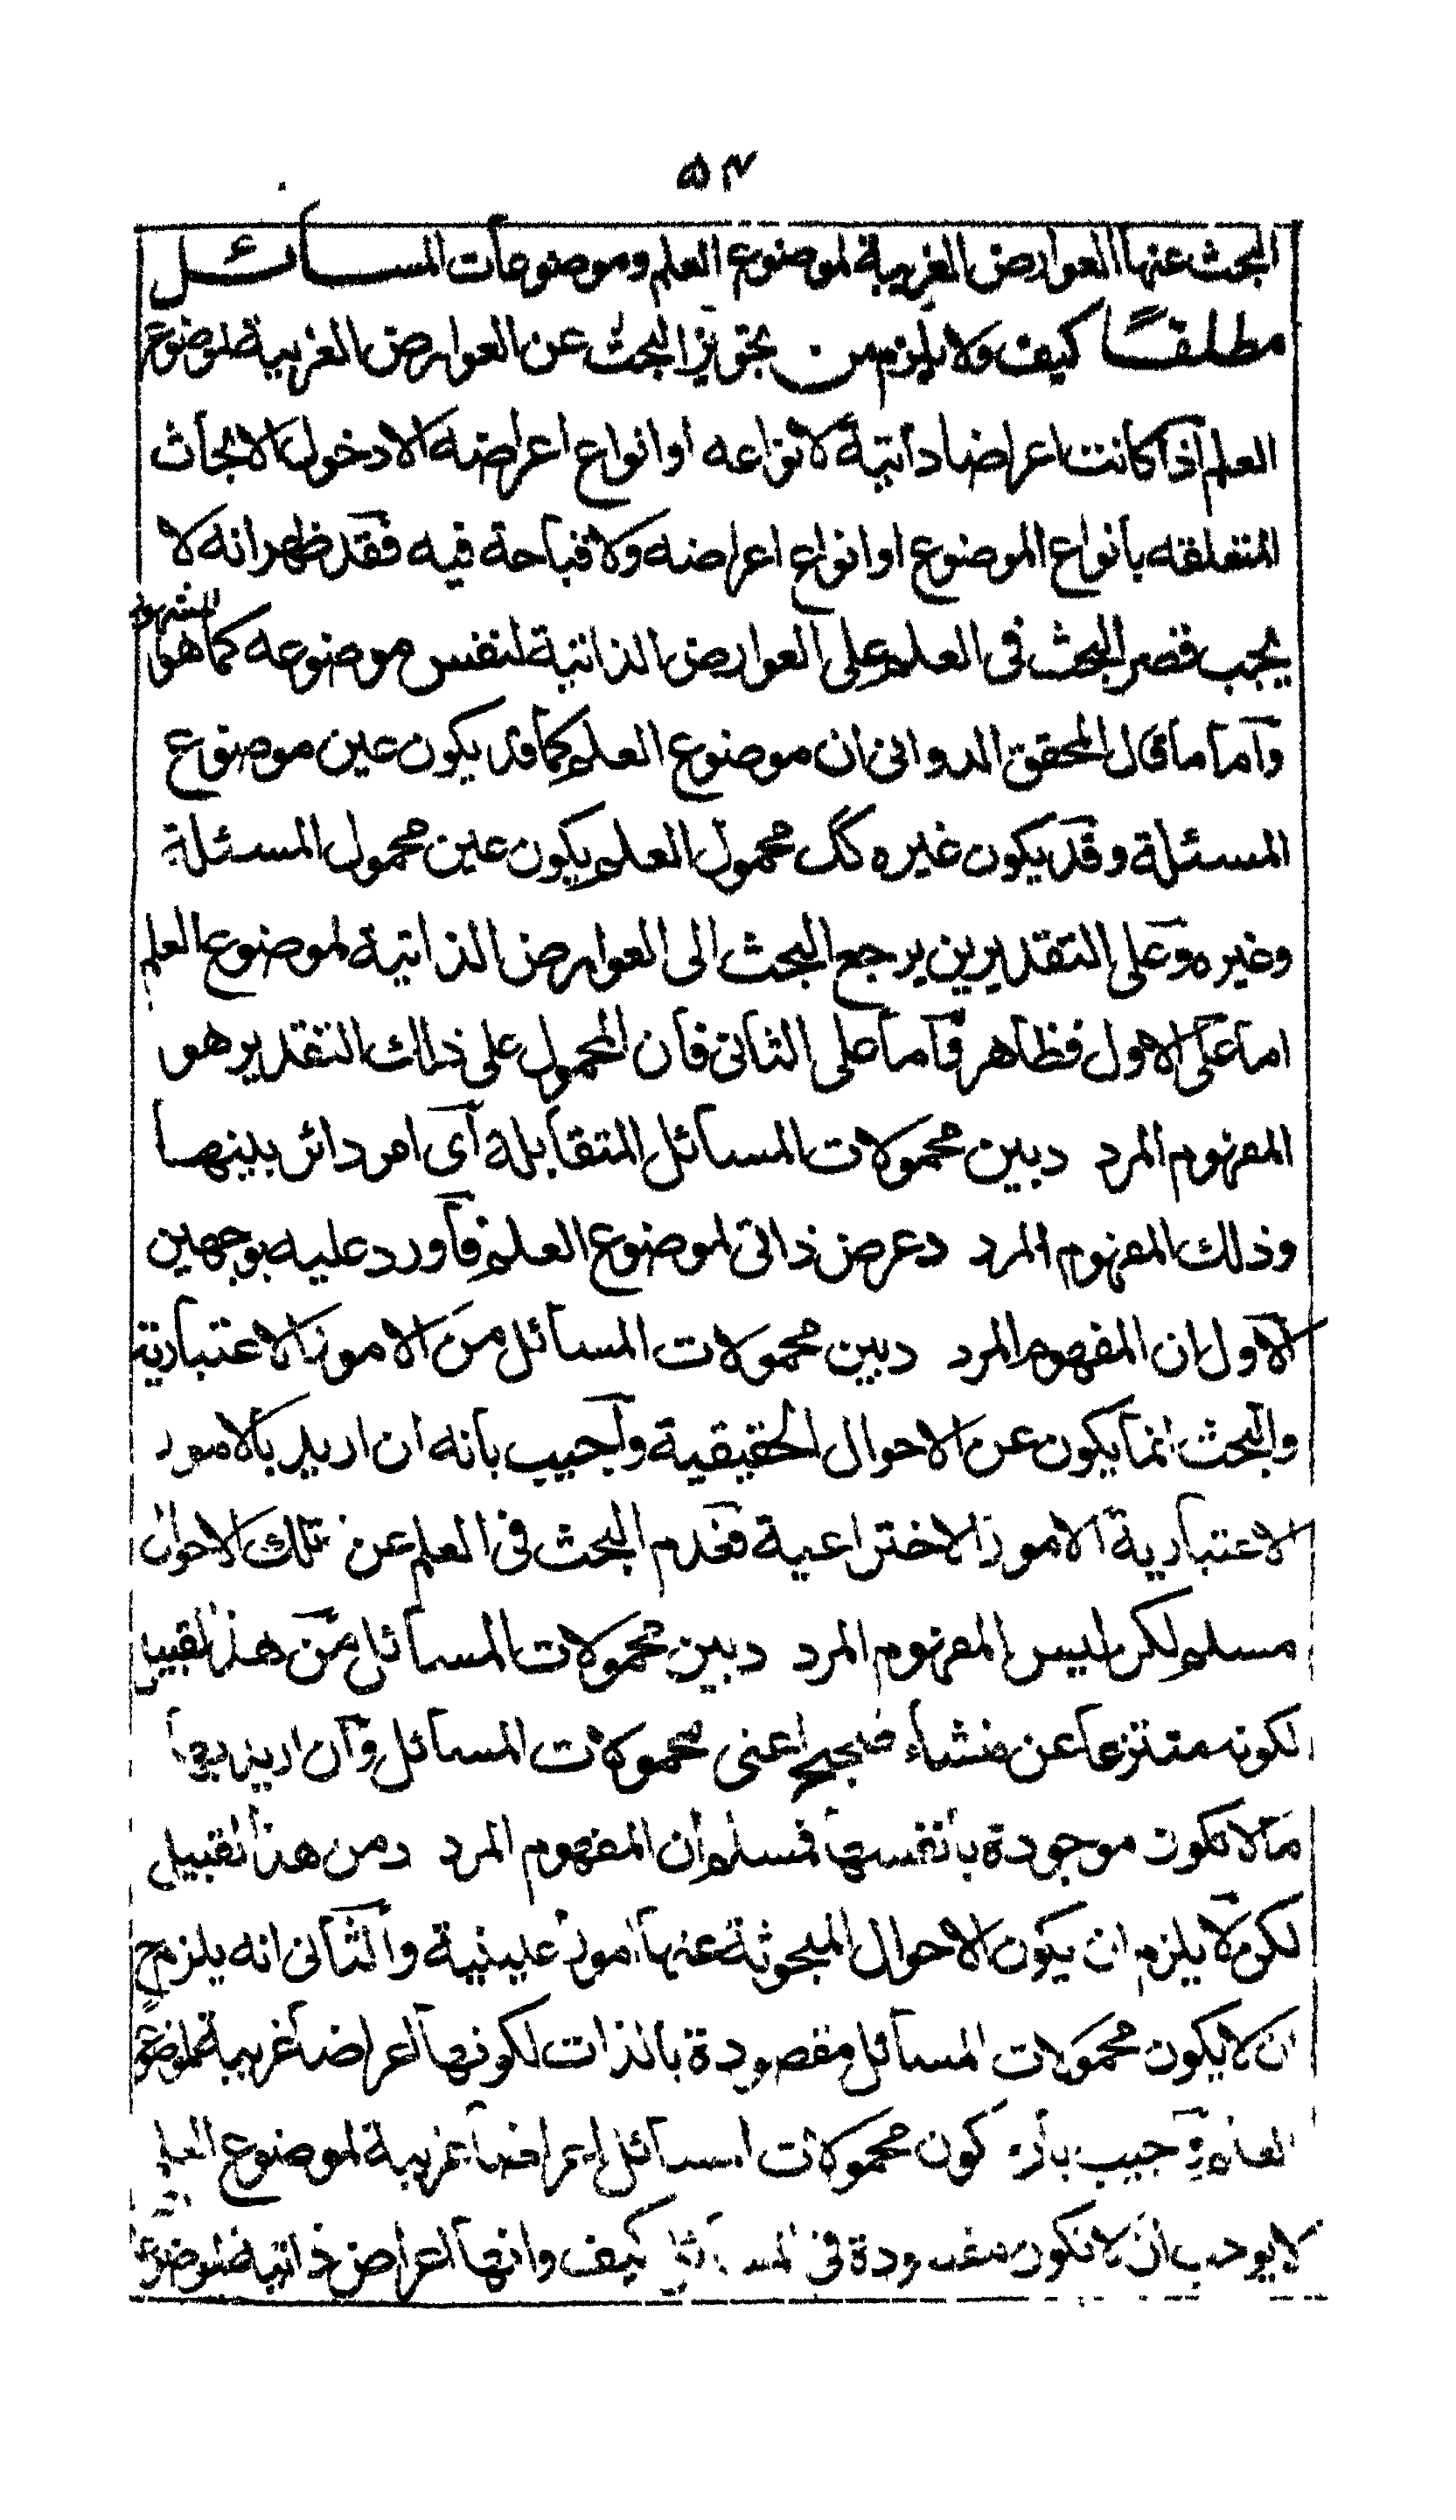 ۵۳
البحث عنها العوارض الغريبة لموضوع العلم وموضوعات المسائل
مطلقًا كيف ولا يلزم من تجويز البحث عن العوارض الغريبة لموضوع
العلم اذا كانت اعراضا ذاتية لانواعه او انواع اعراضه الا دخول الابحاث
المتعلقه بانواع الموضوع او انواع اعراضه ولا قباحة فيه فقد ظهر انه لا
يجب قصر البحث فى العلم على العوارض الذاتية لنفس موضوعه كما هو المشهور
وآما ما قال المحقق الدوانى ان موضوع العلم كما قد يكون عين موضوع
المسئلة وقد يكون غيره كك محمول العلم يكون عين محمول المسئلة
وغيره وعلى التقديرين يرجع البحث الى العوارض الذاتية لموضوع العلم
اما على الاول فظاهر وآما على الثانى فان المحمول على ذلك التقدير هو
المفهوم المرد دبين محمولات المسائل المتقابلة آى امر دائر بينها
وذلك المفهوم المرد دعرض ذاتى لموضوع العلم فآورد عليه بوجهين
الآول ان المفهوم المرد دبين محمولات المسائل من الامور الاعتبارية
والبحث انما يكون عن الاحوال الحقيقية وآجيب بانه ان اريد بالامور
الاعتبارية الامور الاختراعية فعدم البحث فى العلم عن تلك الاحوال
مسلم لكن ليس المفهوم المرد دبين محمولات المسائل من هذا القبيل
لكونه منتزعا عن منشاء صحيح اعنى محمولات المسائل وآن اريد بها
ما لا تكون موجودة بانفسها فمسلم ان المفهوم المرد دمن هذا القبيل
لكن لا يلزم ان يكون الاحوال المبحوثة عنها امور عينية والثانى انه يلزم ح
ان لا يكون محمولات المسائل مقصودة بالذات لكونها اعراضا غريبة لموضوع
العلم جيب بان كون محمولات المسائل اعراضا غريبة لموضوع العلم
لا يوجب ان لا تكون مقصودة فى المسائل كيف وانها اعراض ذاتية لموضوعا